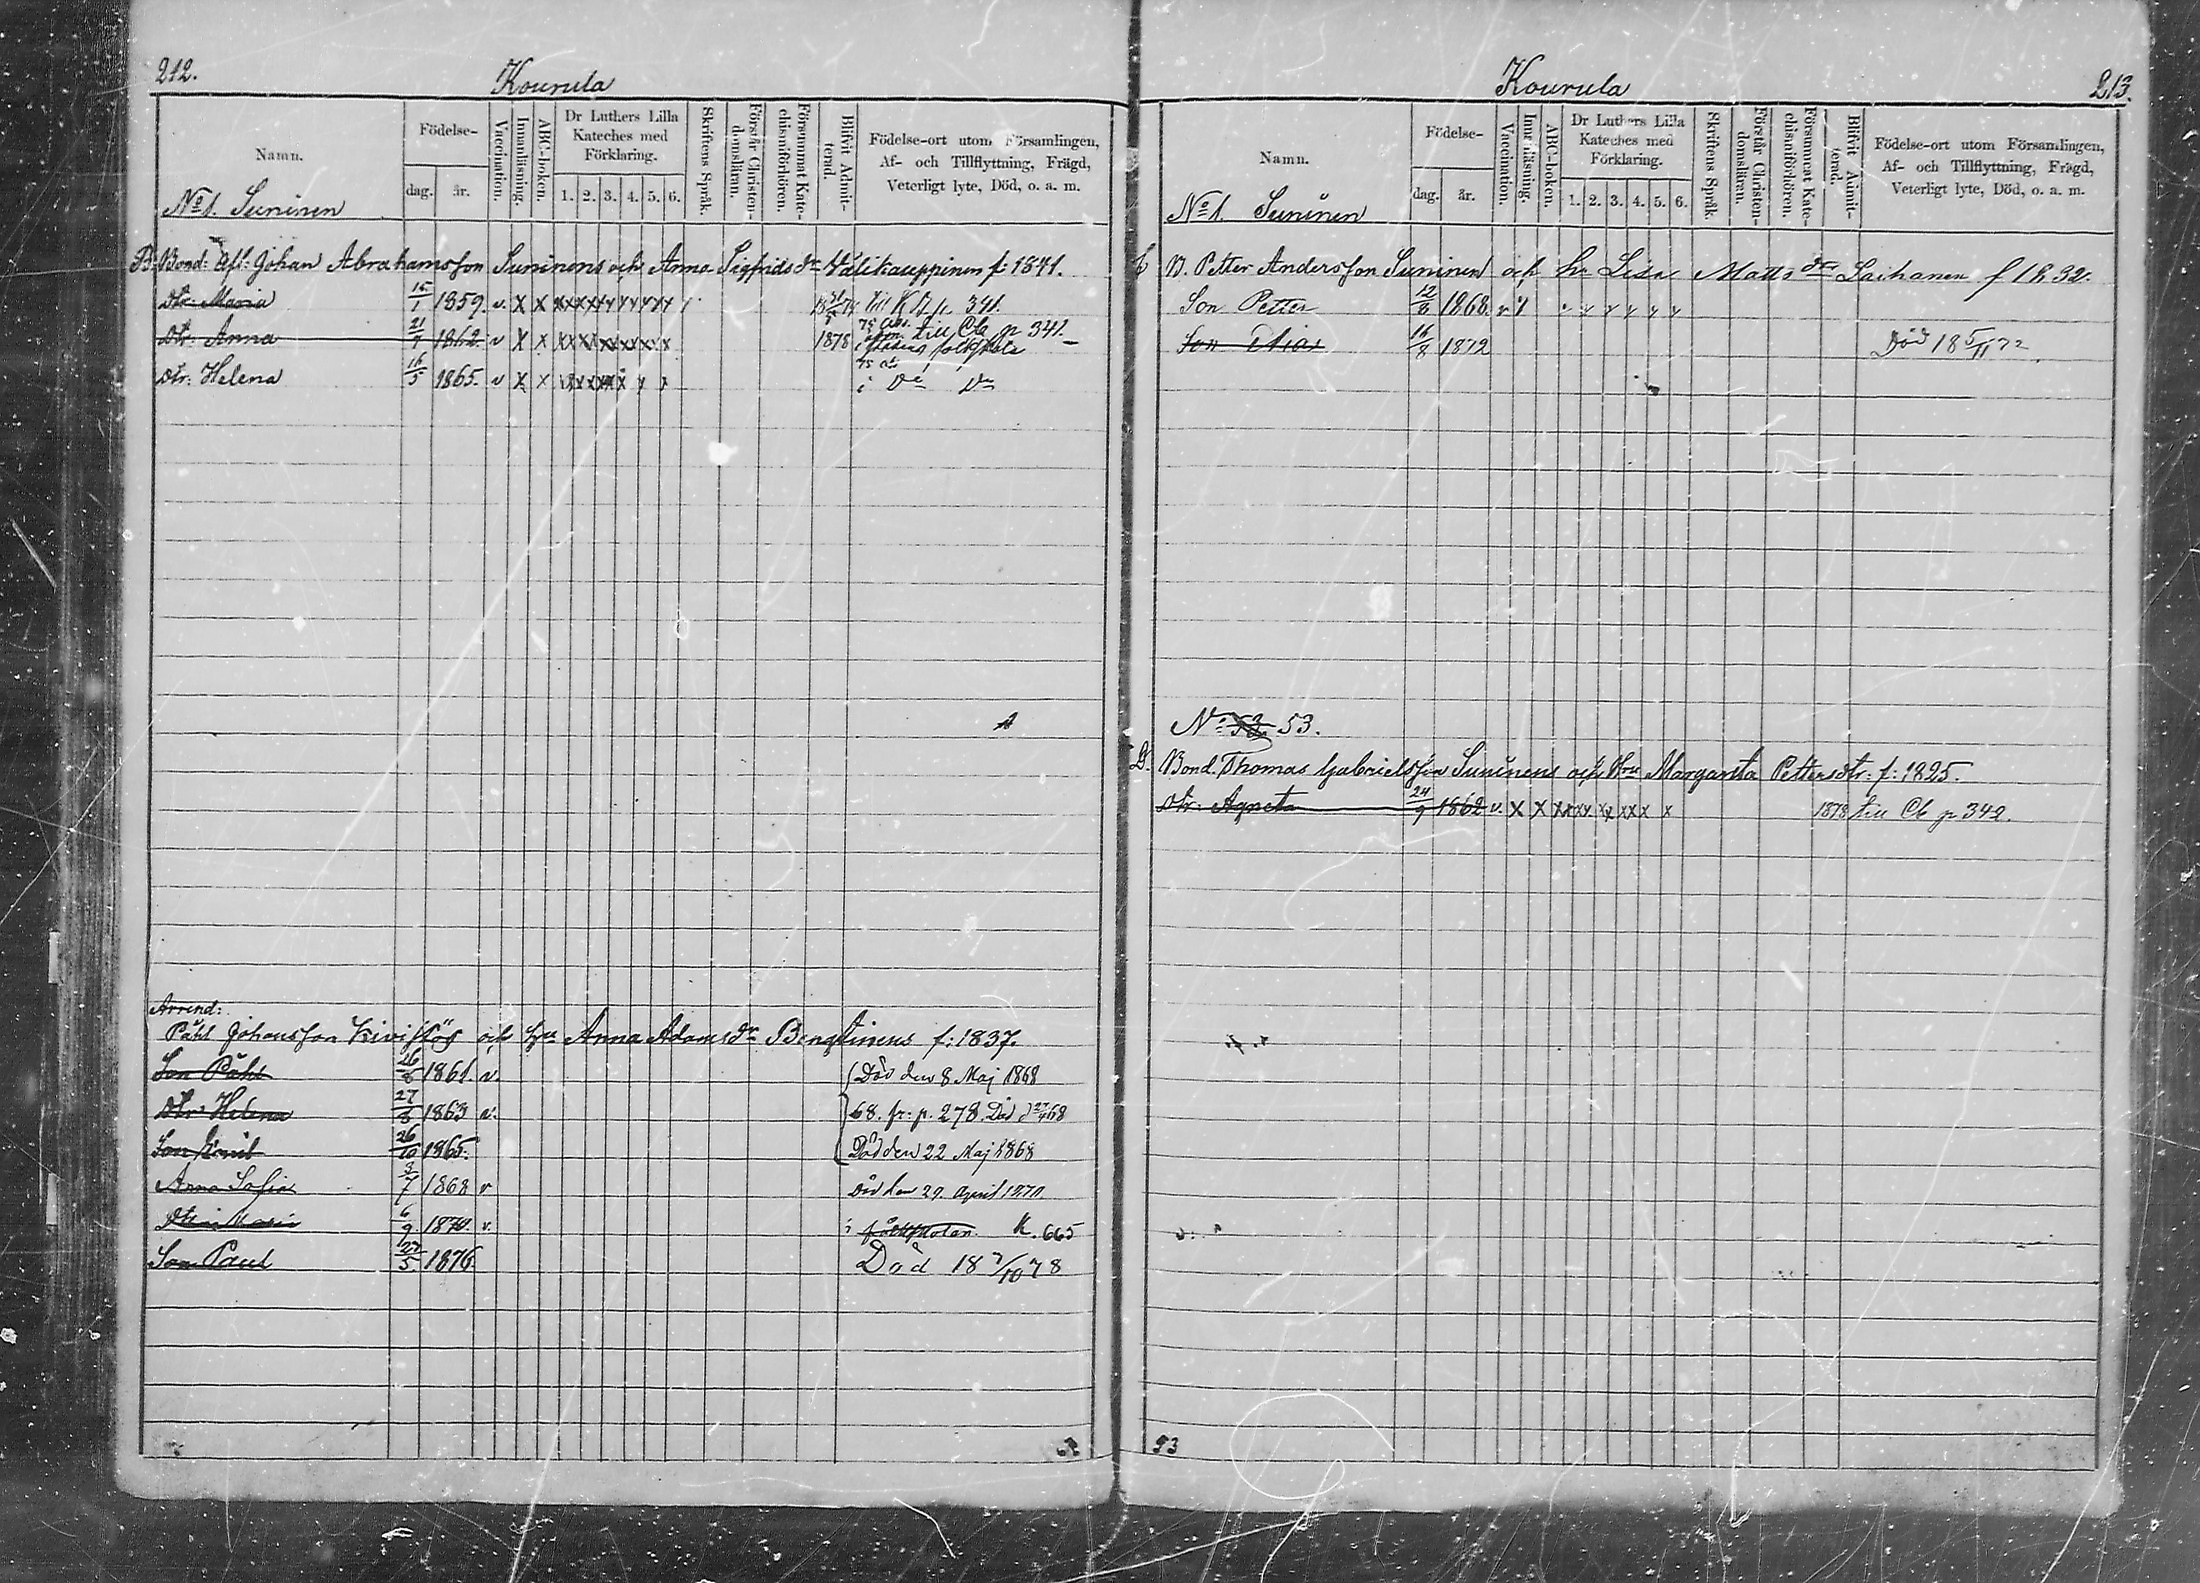 212.
Kourula
Namn.
Födelse-
dag.
år.
Vaccination.
Innanläsning.
ABC-boken.
Dr Luthers Lilla
Kateches med
Förklaring.
1. 2. 3. 4. 5. 6.
Skriftens Språk.
Förstår Christen-
domsläran.
Försummat Kate-
chismiförhören.
Blifvit Admit-
terad.
Födelse-ort utom Församlingen,
Af- och Tillflyttning, Frägd,
Veterligt lyte, Död, o. a. m.
No 1. Suninen
B. Bond: Afl: Johan Abrahamsson Suninens och Anna Sigfridsdr Välikauppinen f: 1841.
dtr Maria 15/1 1859. v. X X till p. 341.
dtr. Anna 21/9 1862. v X X 1878 till Cb p 341
i folkskola
dtr: Helena 16/5 1865. v X X
i do do
Arrend:
Påhl Johansson Kivistös och hu Anna Adamsdr Bengtinens f: 1837.
Son Påhl 26/8 1861. v. Död den 8 Maj 1868
dtr: Helena 27/8 1863 v. 68. fr: p. 278. Död 68
Son Emil 26/10 1865. Död den 22 Maj 1868
Anna Sofia 3/7 1868 v Död den 29 April 1870
Maria 6/9 1870. v. i folkskolan. K. 665
Son Paul 27/5 1876 Död 18 7/10 78
Kourula
213.
Namn.
Födelse-
dag.
år.
Vaccination.
Innanläsning.
ABC-boken.
Dr Luthers Lilla
Kateches med
Förklaring.
1. 2. 3. 4. 5. 6.
Skriftens Språk.
Förstår Christen-
domsläran.
Försummat Kate-
chismiförhören.
Blifvit Admit-
terad.
Födelse-ort utom Församlingen,
Af- och Tillflyttning, Frägd,
Veterligt lyte, Död, o. a. m.
No 1. Suninen
B. Petter Andersson Suninen och hu Lisa Mattsdr Laihanen f 1832.
Son Petter 12/8 1868. v
Son Elias 16/8 1872 Död 18 5/11 72
No 53 53.
D. Bond. Thomas Gabrielsson Suninens och Hru Margareta Pettersdtr: f: 1825.
dtr. Agneta 24/9 1862 v. X X 1878 till Cb p 342.
53